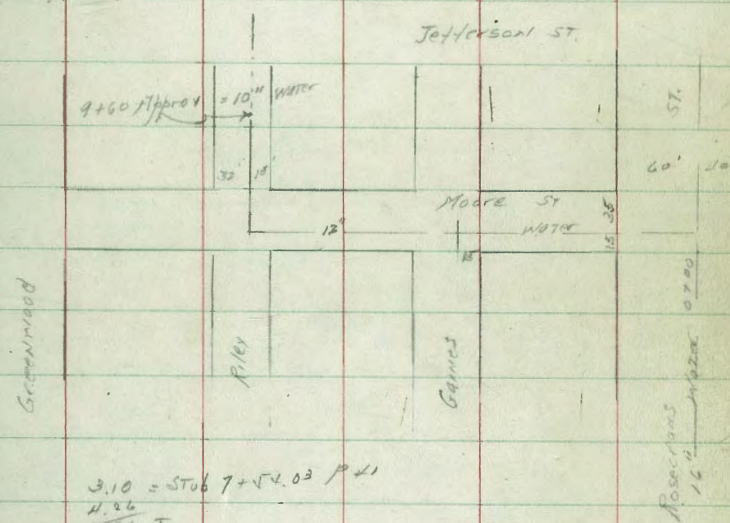 Jefferson ST.
9+60 Approx = 10" Water
ST.
32' 18'
60' 40
Moore ST
12" Water
15 35
Greenwood
Riley
Gaines
Rosecrans
16" Water 0+00
3.10 = STub 7+54.03 P 41
4.26